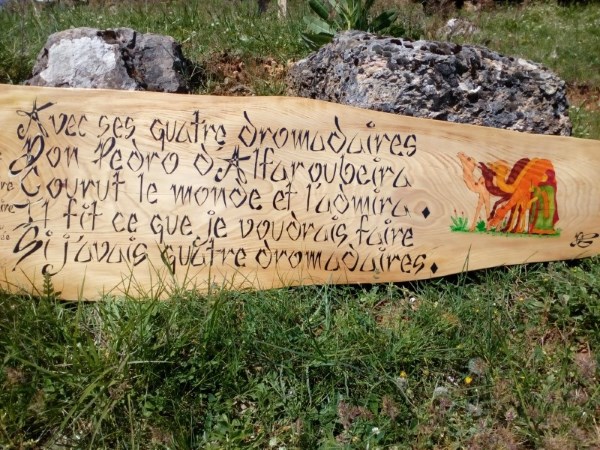 Avec ses quatre dromadaires
Don Pedro d'Alfaroubeira
Courut le monde et l'admira.
Il fit ce que je voudrais faire
Si j'avais quatre dromadaires.